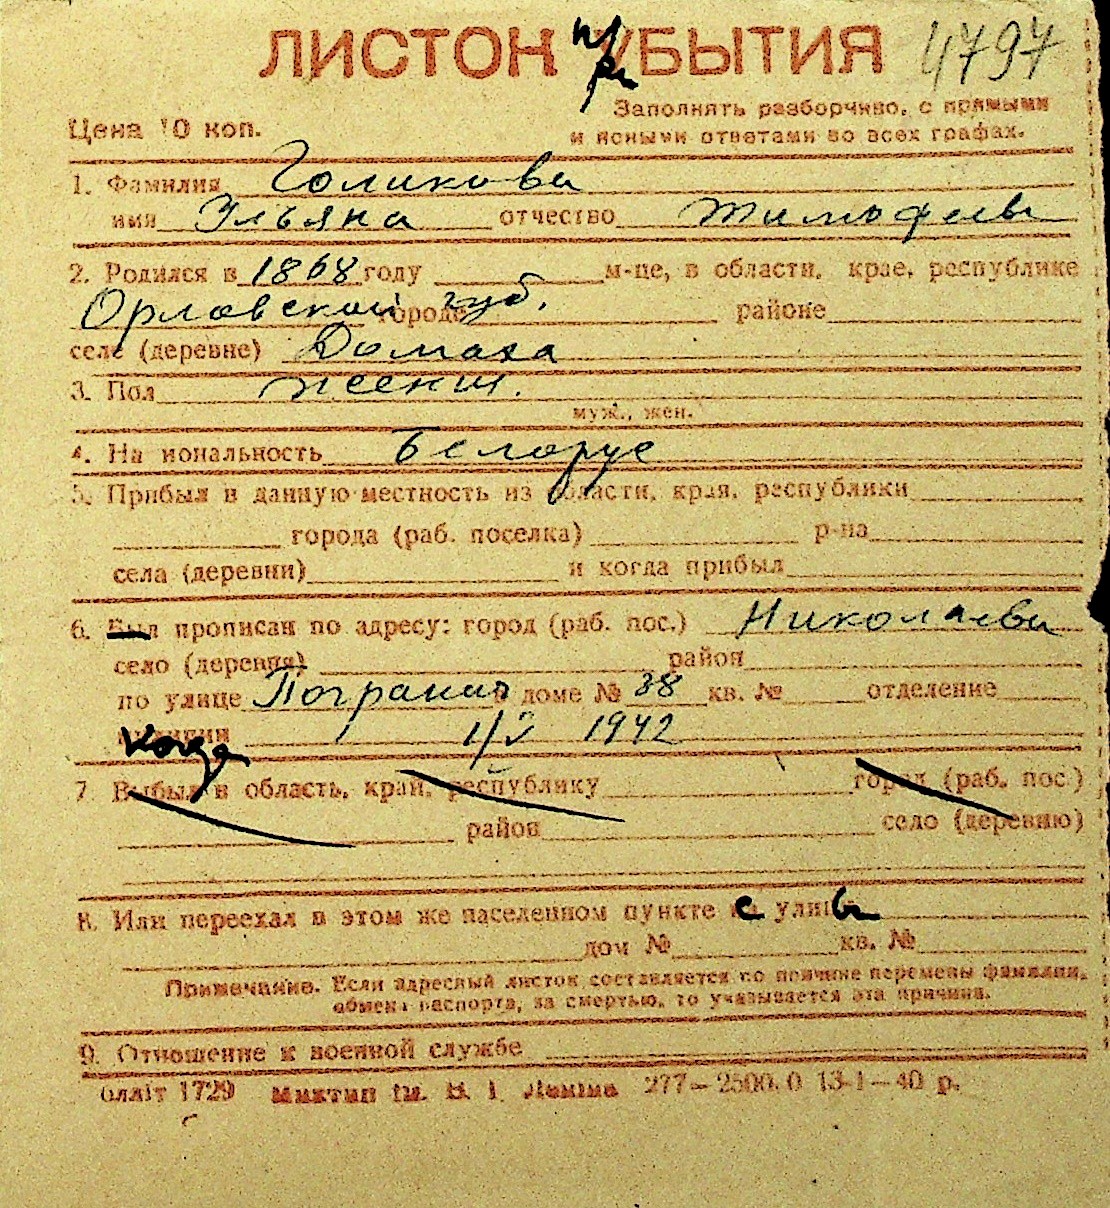 ЛИСТОК при УБЫТИЯ 4797
Цена 10 коп.
Заполнять разборчиво, с прямыми
и ясными ответами во всех графах.
1. Фамилия Голикова
имя Ульяна отчество Тимофеев
2. Родился в 1868 году м-це, в области, крае, республике
Орловской губ. городе районе
селе (деревне) Домаха
3. Пол женщ.
муж., жен.
4. Национальность Белорус
5. Прибыл в данную местность из области, края, республики
города (раб. поселка) р-на
села (деревни) и когда прибыл
6. Был прописан по адресу: город (раб. пос.) Николаева
село (деревня) район
по улице Погранич в доме № 38 кв. № отделение
милиции когда 1/V 1942
7. Выбыл в область, край, республику город (раб. пос.)
район село (деревню)
8. Или переехал в этом же населенном пункте с улицы
дом № кв. №
Примечание. Если адресный листок составляется по причине перемены фамилии,
обмена паспорта, за смертью, то указывается эта причина.
9. Отношение к военной службе
Олліт 1729 Миктип ім. В. І. Леніна 277—2500.0 13-1—40 р.